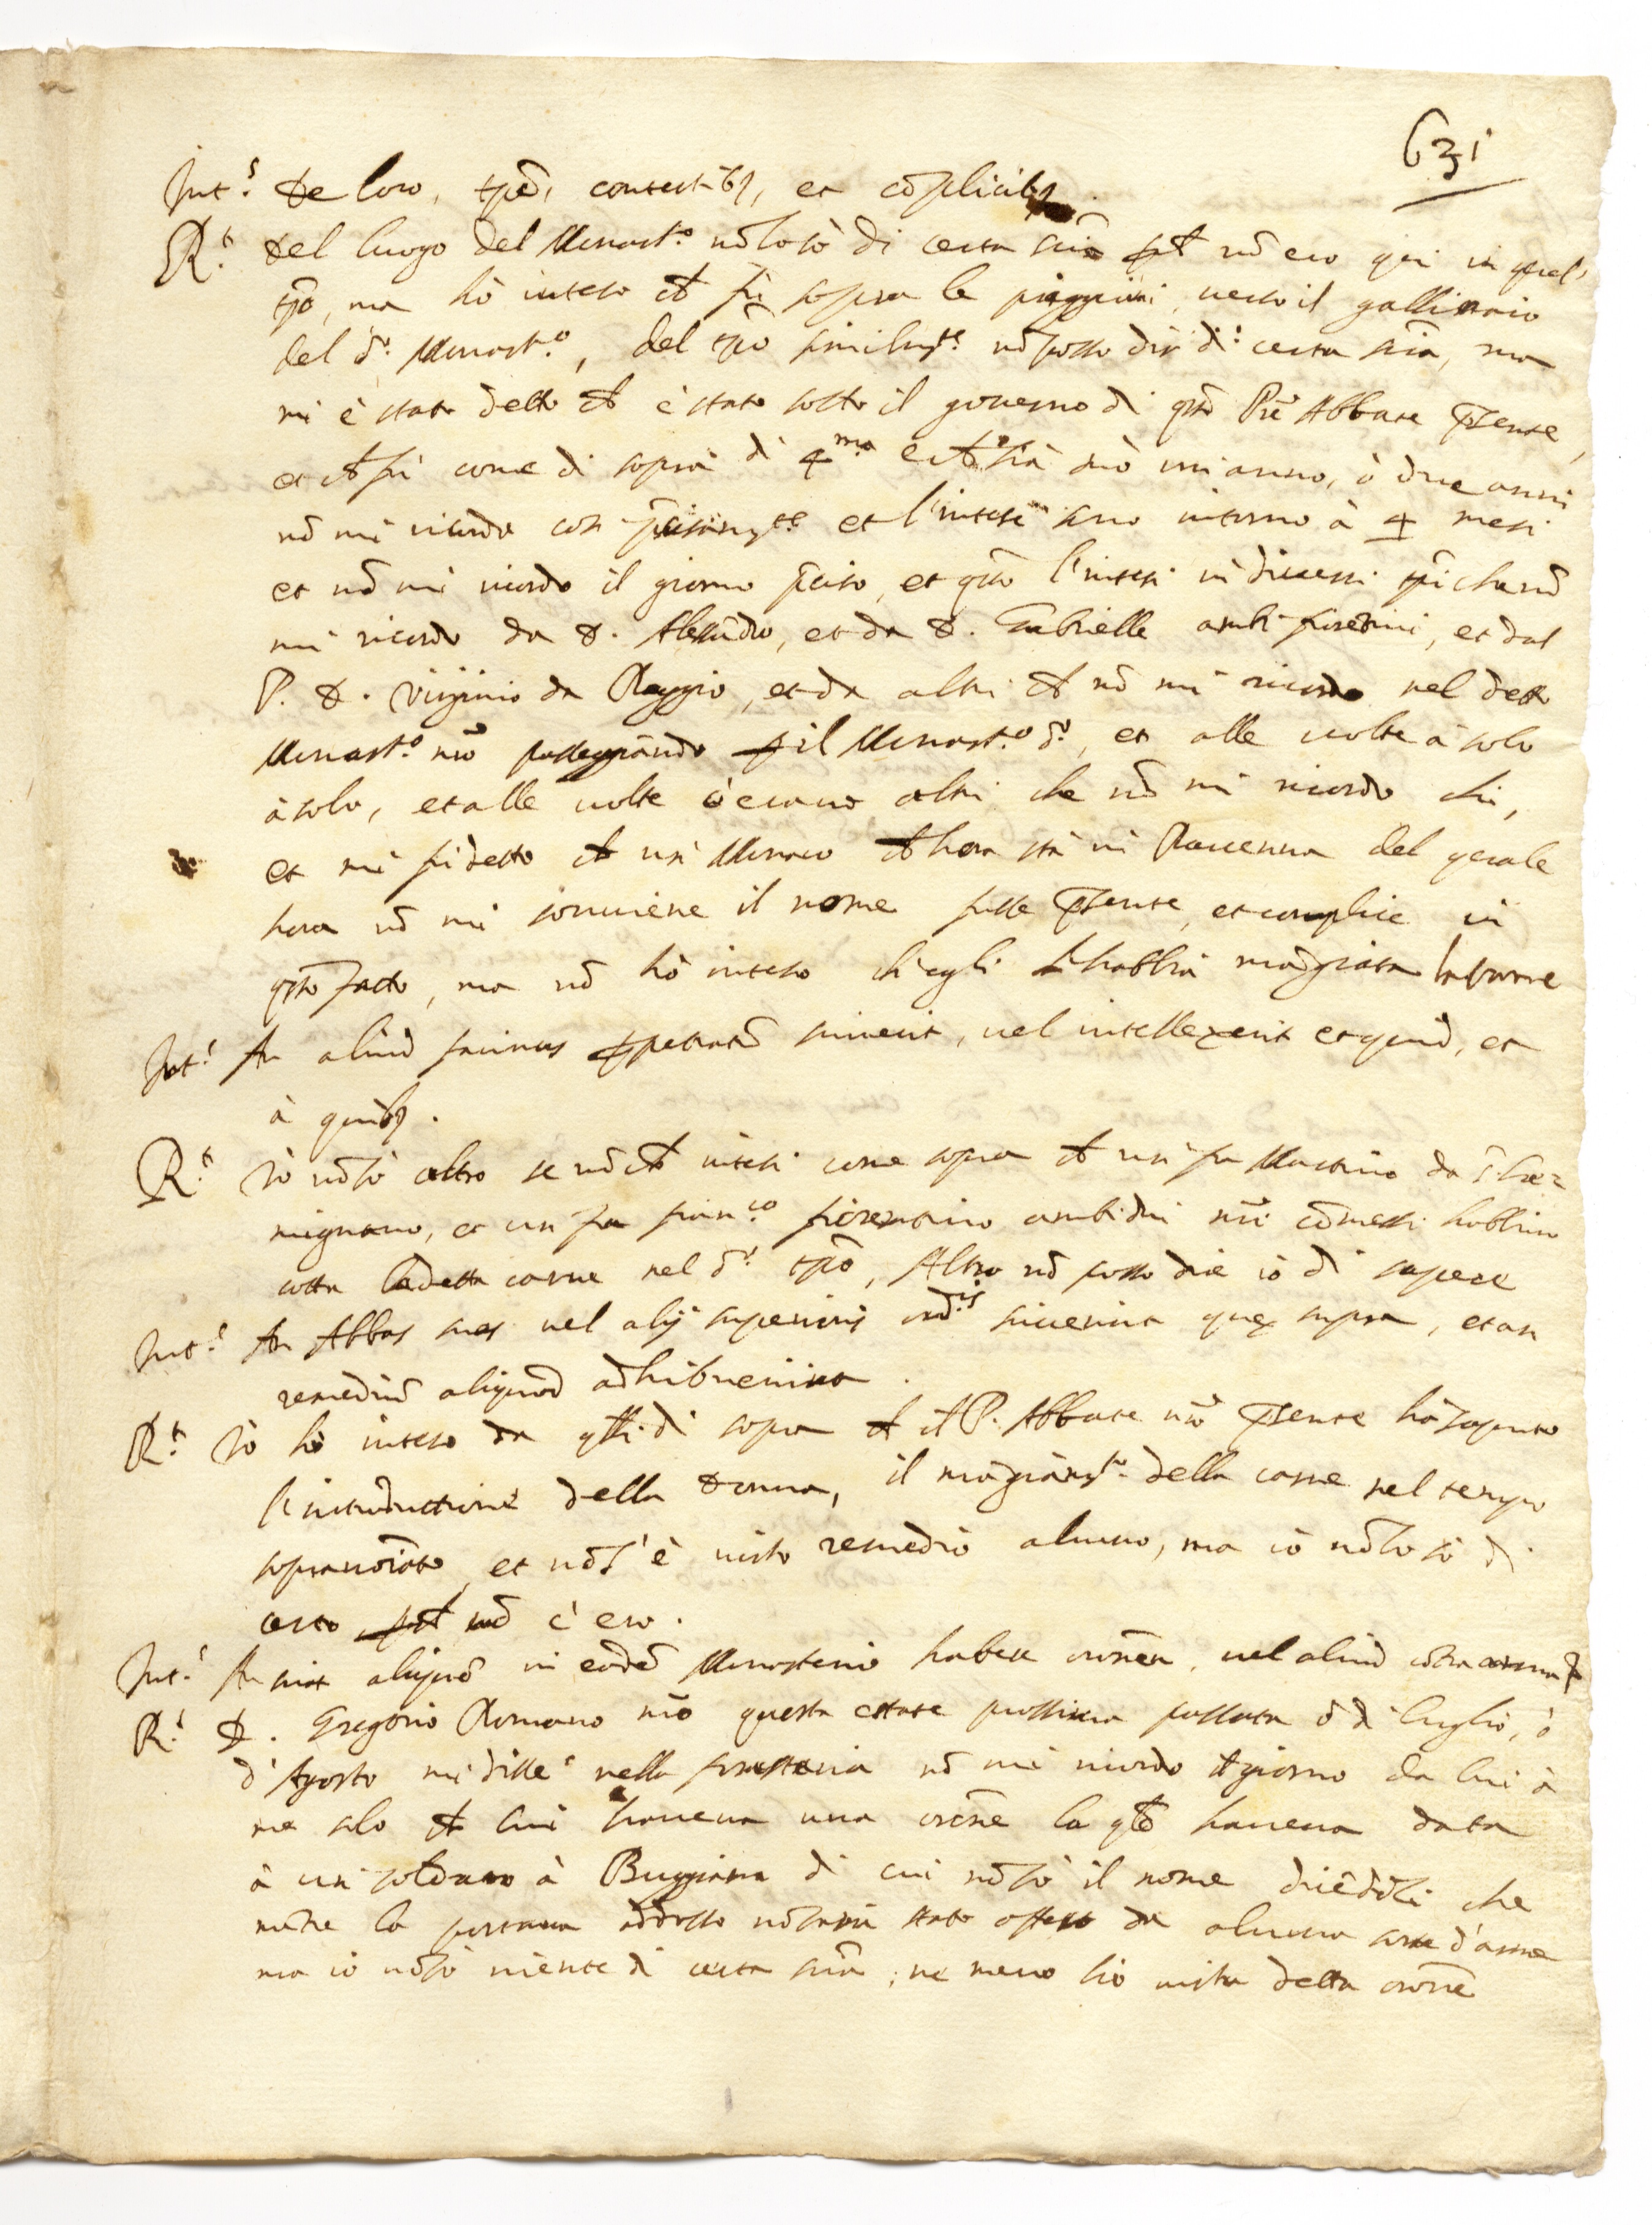 631
Int.s De loco, tpē, contestibȝ, et cōplicibȝ
R.t Del luogo del Monast.o nō lo sò di certa sciā pch nō ero qui in quel
tpō, ma hò inteso ch fù sopra le priggioni verso il gallinaio
del d.o Monast.o, del tpō similmte nō posso dir di certa sciā, ma
mi è stato detto ch è stato sotto il governo di qsto Prē Abbate pūte,
et ch fù come di sopra di 4.ma et ch sia mò un anno, ò due anni
nō mi ricordo con pcisamte et l'intesi sono intorno à 4 mesi
et nō mi ricordo il giorno pciso, et qsto l'intesi in diversi tpi che nō
mi ricordo da D. Alessādro, et da D. Gabrielle ambi fiorētini, et dal
P. D. Virginio da Reggio, et da altri ch nō mi ricordo nel detto
Monast.o nrō passeggiando p il Monast.o d.o, et alle volte à solo
à solo, et alle volte v'erano altri che nō mi ricordo chi,
et mi fu detto ch un Monaco ch hora stà in Ravenna del quale
hora nō mi soviene il nome fusse pūte, et complice in
qsto fatto, ma nō hò inteso ch'egli habbia māgiata la carne
Int.s An aliud facinus ppetratū sciverit, vel intellexerit et quid, et
à quibȝ.
R.t Io nō sò altro se nō ch intesi come sopra ch un fra Martino da S. Gie=
mignano, et un fra Fran.co fiorentino ambidui nrī cōmessi habbino
cotta la detta carne nel d.o tpō, Altro nō posso dire io di sapere
Int.s An Abbas suus vel alij superiores ord.is sciverint que supra, et an
remediū aliquod adhibuerint.
R.t Io hò inteso da qlli di sopra ch il P. Abbate nrō pūte hà saputo
l'introduttione della Donna, il māgiamto della carne nel tempo
sopranoiato et nō s'è visto remedio alcuno, ma io nō lo sò di
certo pch nō c'ero.
Int.s An sciat aliquē in eodē Monasterio habere oronē, vel aliud cōtra arma
R.t D. Gregorio Romano nrō questa estate prossima passata ò di luglio, ò
d'Agosto mi disse nella foresteria nō mi ricordo il giorno da lui à
me solo ch lui haveva una orōne la qle haveva data
à un soldato à Buggiano di cui nō sò il nome dicēdoli che
mētre la portava adosso nō saria stato offeso da alcuna sorte d'arme
ma io nō sò niente di certa sciā, ne meno hò vista detta orōne